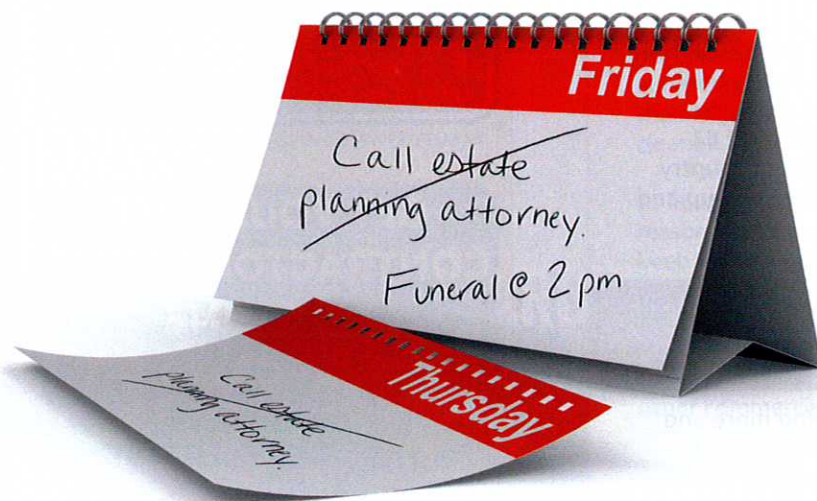 Friday
Call estate
planning attorney.
Funeral @ 2 pm
Thursday
Call estate
planning attorney.